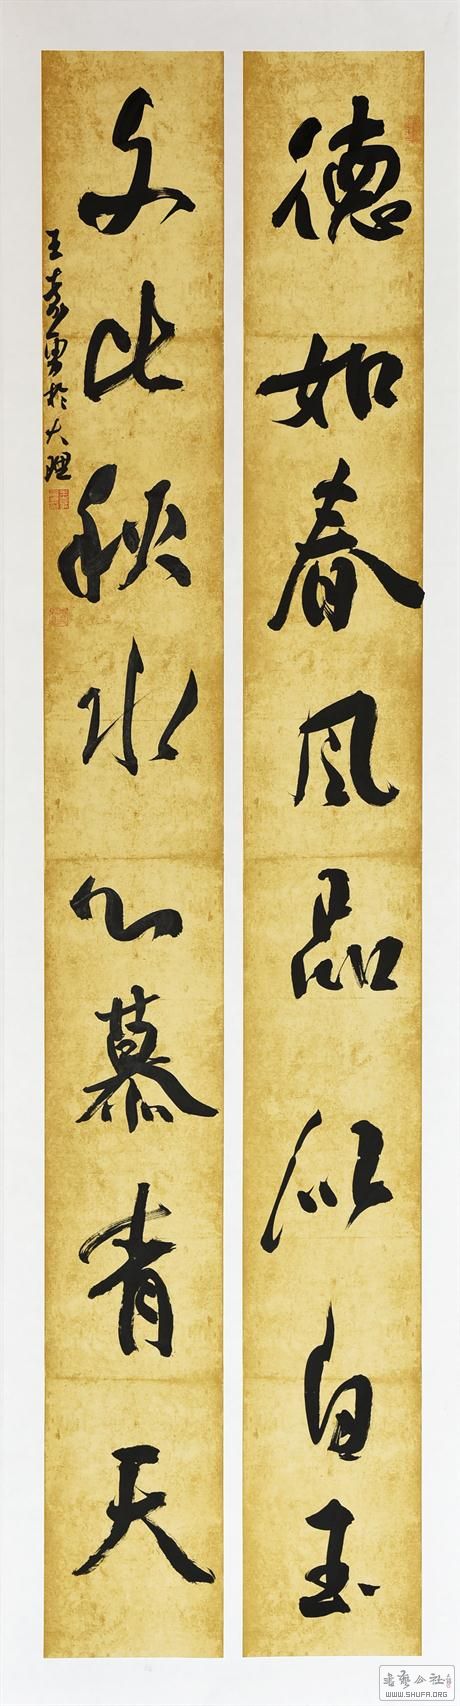 德如春风品似白玉
文比秋水心慕青天
王嘉勇于大理
书艺公社
WWW.SHUFA.ORG